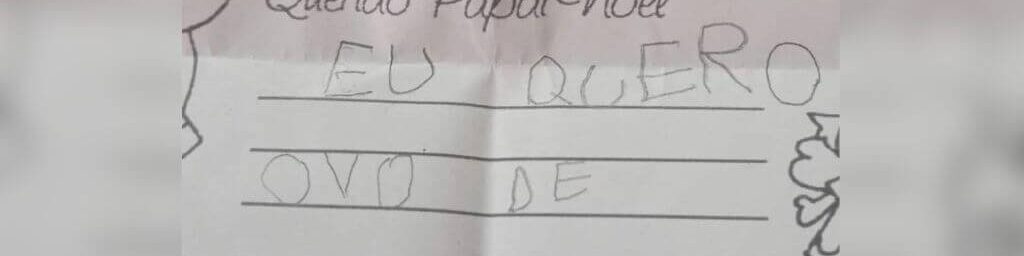 Querido Papai-Noel
EU QUERO
OVO DE